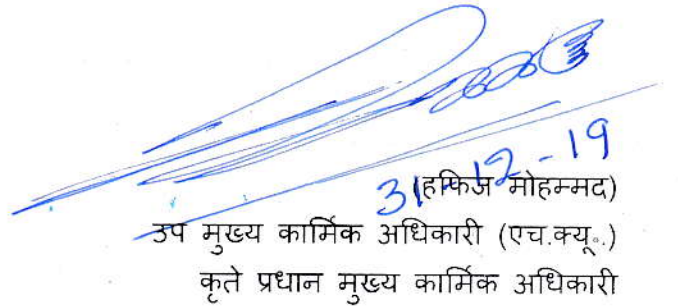 31-12-19
(हफिज मोहम्मद)
उप मुख्य कार्मिक अधिकारी (एच.क्यू.)
कृते प्रधान मुख्य कार्मिक अधिकारी